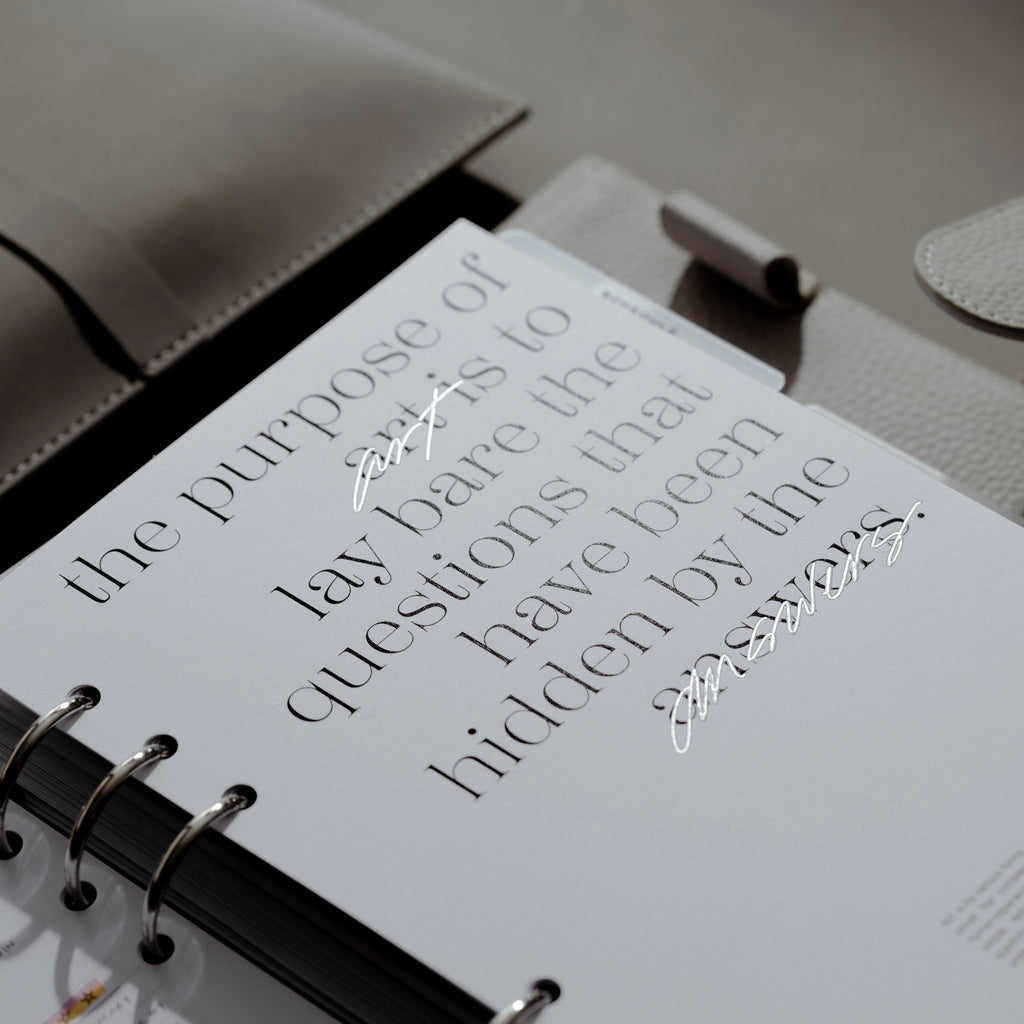 the purpose of
art is to
art
lay bare the
questions that
have been
hidden by the
answers.
answers